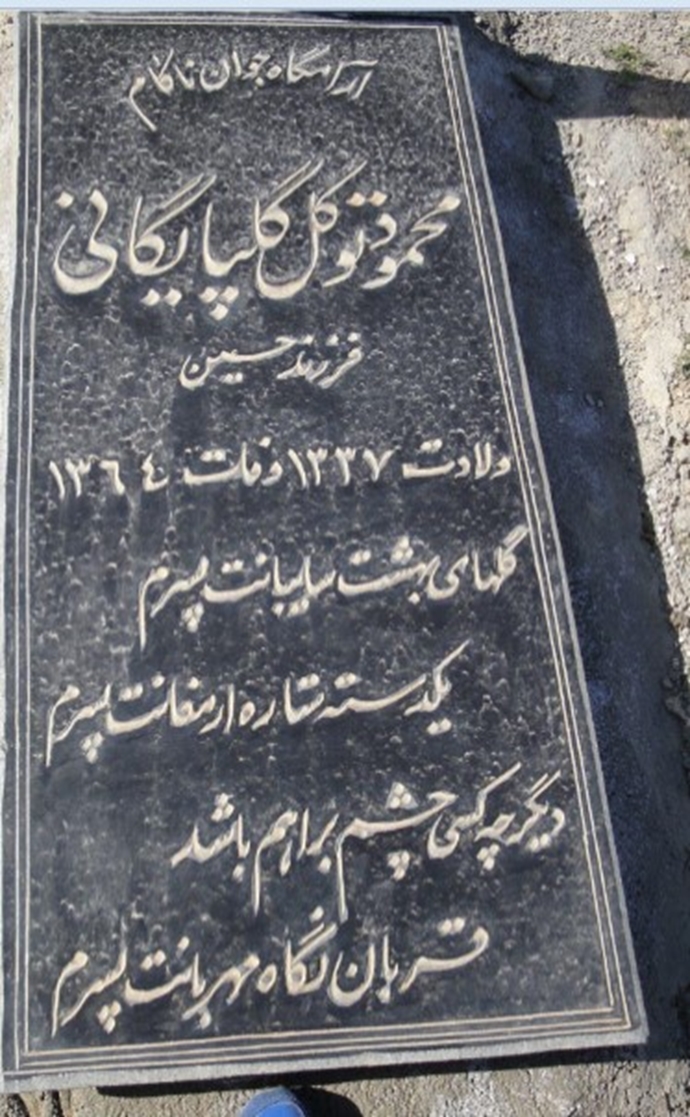 آرامگاه جوان ناکام
محمود توکل گلپایگانی
فرزند حسین
ولادت ۱۳۳۷ وفات ۱۳٦٤
گلهای بهشت سایبانت پسرم
یکدسته ستاره ارمغانت پسرم
دیگر چه کسی چشم براهم باشد
قربان نگاه مهربانت پسرم